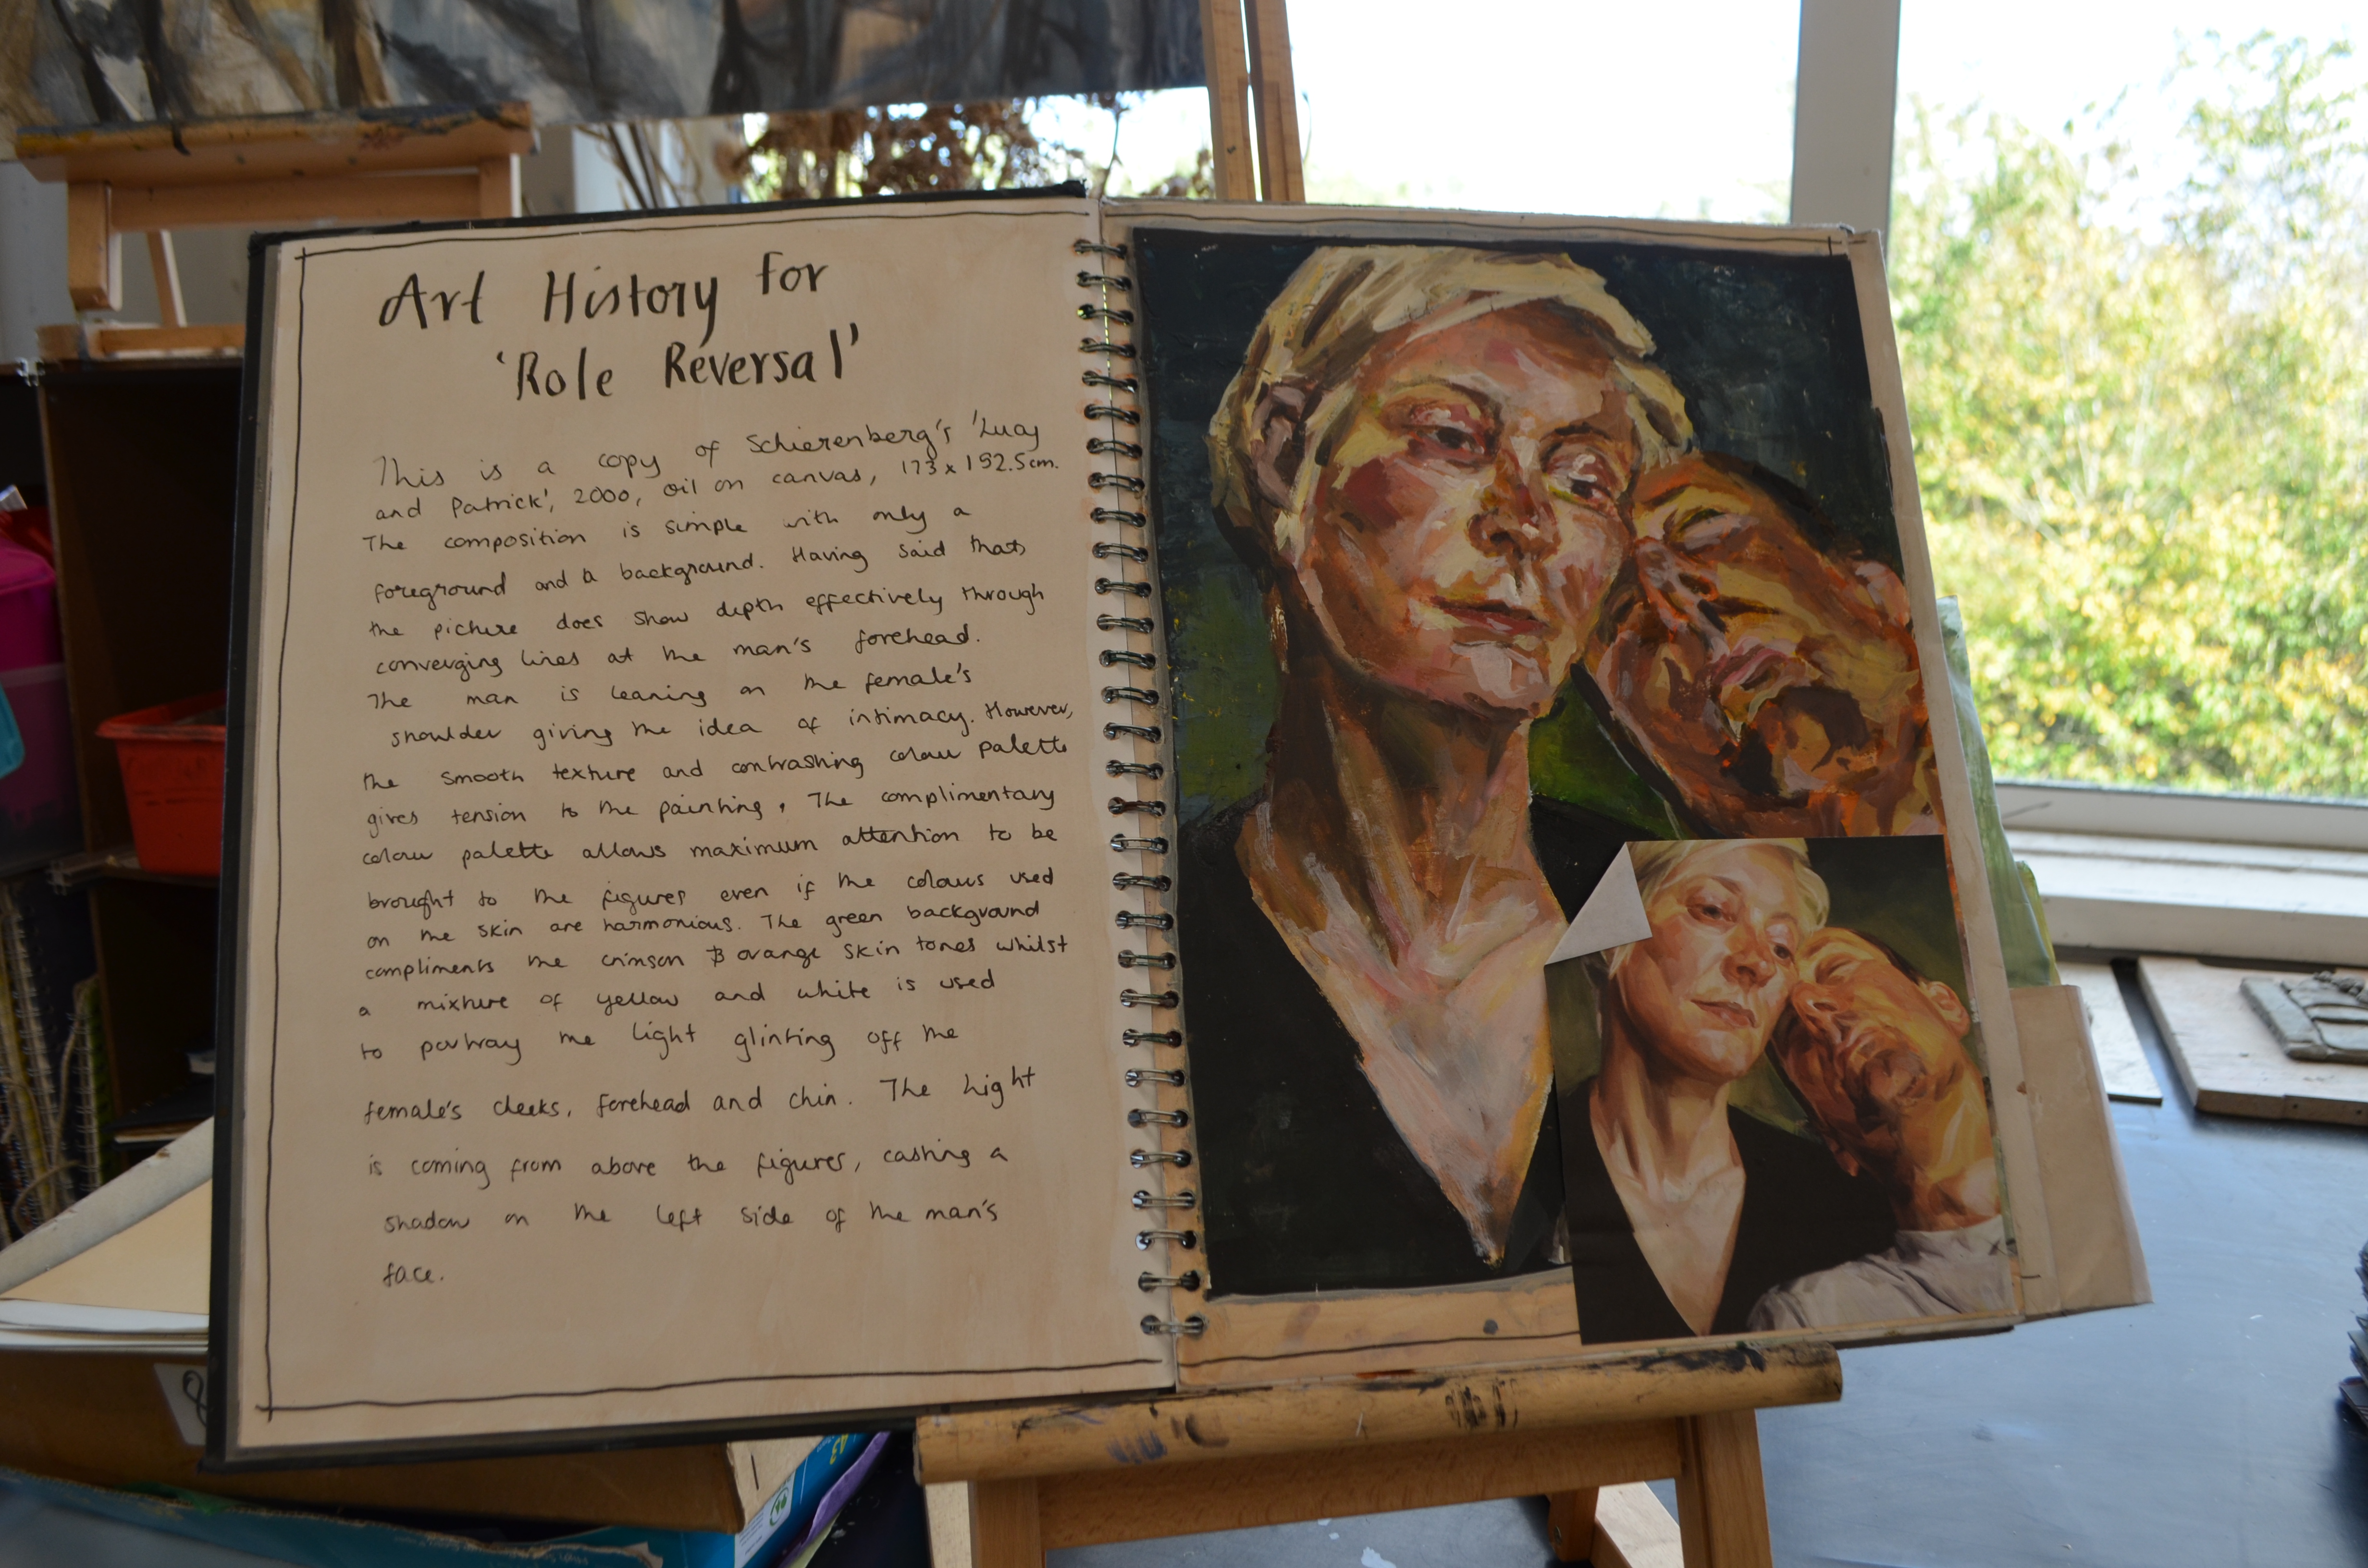 Art History for
'Role Reversal'
This is a copy of Schierenberg's 'Lucy
and Patrick', 2000, oil on canvas, 173 x 192.5cm.
The composition is simple with only a
foreground and a background. Having said that,
the picture does show depth effectively through
converging lines at the man's forehead.
The man is leaning on the female's
shoulder giving the idea of intimacy. However,
the smooth texture and contrashing colour palette
gives tension to the painting. The complimentary
colour palette allows maximum attention to be
brought to the figures even if the colours used
on the skin are harmonious. The green background
compliments the crimson & orange skin tones whilst
a mixture of yellow and white is used
to portray the light glinting off the
female's cheeks, forehead and chin. The light
is coming from above the figures, casting a
shadow on the left side of the man's
face.
A3